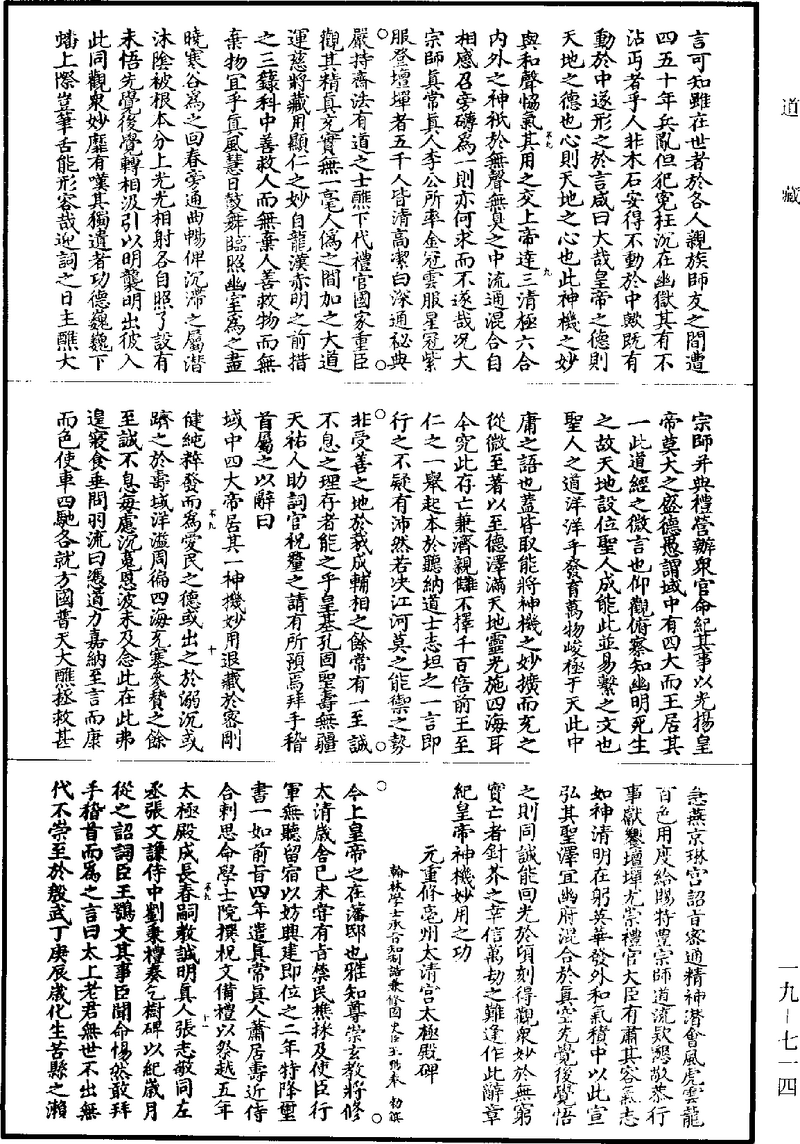 道藏
言可知雖在世者於各人親族師友之間遭
四五十年兵亂但犯冤枉沉在幽獄其有不
沾丐者乎人非木石安得不動於中歟既有
動於中遂形之於言咸曰大哉皇帝之德則
天地之德也心則天地之心也此神機之妙
與和聲恊氣其用之交上帝達三清極六合
內外之神祇於無聲無臭之中流通混合自
相感召旁礴爲一則亦何求而不遂哉況大
宗師真常真人李公所率金冠雲服星冠紫
服登壇墠者五千人皆清高潔白深通祕典
嚴持齋法有道之士醮下代禮官國家重臣
觀其精真充實無一毫人僞之間加之大道
運慈將藏用顯仁之妙自龍漢赤明之前措
之三籙科中善救人而無棄人善救物而無
棄物宜乎真風慧日鼓舞臨照幽室爲之盡
曉寒谷爲之回春旁通曲暢俾沉滯之屬潛
沐陰被根本分上光光相射各自照了設有
未悟先覺後覺轉相汲引以明襲明出彼入
此同觀衆妙靡有嘆其獨遺者功德巍巍下
蟠上際豈筆舌能形容哉迎詞之日主醮大
宗師并典禮營辦衆官命紀其事以光揚皇
帝莫大之盛德愚謂域中有四大而王居其
一此道經之微言也仰觀俯察知幽明死生
之故天地設位聖人成能此並易繫之文也
聖人之道洋洋乎發育萬物峻極于天此中
庸之語也蓋皆取能將神機之妙擴而充之
從微至著以至德澤滿天地靈光施四海耳
今究此存亡兼濟親讎不擇千百倍前王至
仁之一舉起本於聽納道士志坦之一言即
行之不疑有沛然若决江河莫之能禦之勢
非受善之地於裁成輔相之餘常有一至誠
不息之理存者能之乎皇基孔固聖壽無疆
天祐人助詞官祝釐之請有所預焉拜手稽
首屬之以辭曰
域中四大帝居其一神機妙用退藏於密剛
健純粹發而爲愛民之德或出之於溺沉或
躋之於壽域洋溢周徧四海充塞參賛之餘
至誠不息每慮沉冤恩波未及念此在此弗
遑寢食垂問羽流曰憑道力嘉納至言而康
而色使車四馳各就方國普天大醮拯救甚
急燕京琳宮詔旨密通精神潛會風虎雲龍
百色用度給賜特豊宗師道流欵懇敬恭行
事獻饗壇墠尤崇禮官大臣有肅其容氣志
如神清明在躬英華發外和氣積中以此宣
弘其聖澤宜幽府混合於真空先覺後覺悟
之則同誠能回光於頃刻得觀衆妙於無窮
實亡者針芥之幸信萬劫之難逢作此辭章
紀皇帝神機妙用之功
元重修亳州太清宮太極殿碑
翰林學士承旨知制誥兼修國史臣王鶚奉 勅譔
今上皇帝之在藩邸也雅知尊崇玄教將修
太清歲舍己未嘗有旨禁民樵採及使臣行
軍無聽留宿以妨興建即位之二年特降璽
書一如前旨四年遣真常真人蕭居壽近侍
合剌思命學士院撰祝文備禮以祭越五年
太極殿成長春嗣教誠明真人張志敬同左
丞張文謙侍中劉秉禮奏乞樹碑以紀歲月
從之詔詞臣王鶚文其事臣聞命惕然敢拜
手稽首而爲之言曰太上老君無世不出無
代不崇至於殷武丁庚辰歲化生苦縣之瀨
一九－七一四